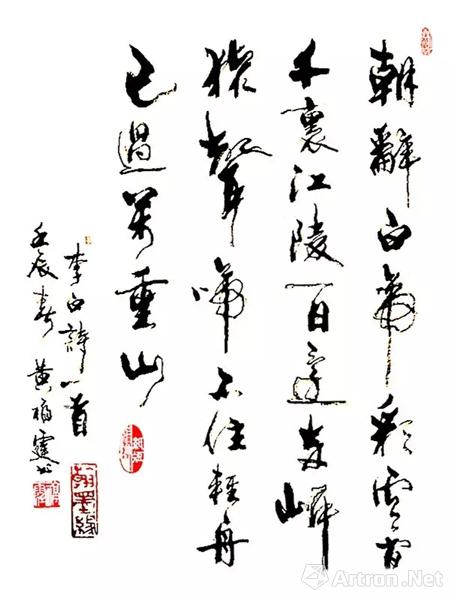 朝辭白帝彩雲間
千裏江陵一日還兩岸
猿聲啼不住輕舟
已過萬重山
李白詩一首
壬辰春 黄
翰墨緣
Artron.Net